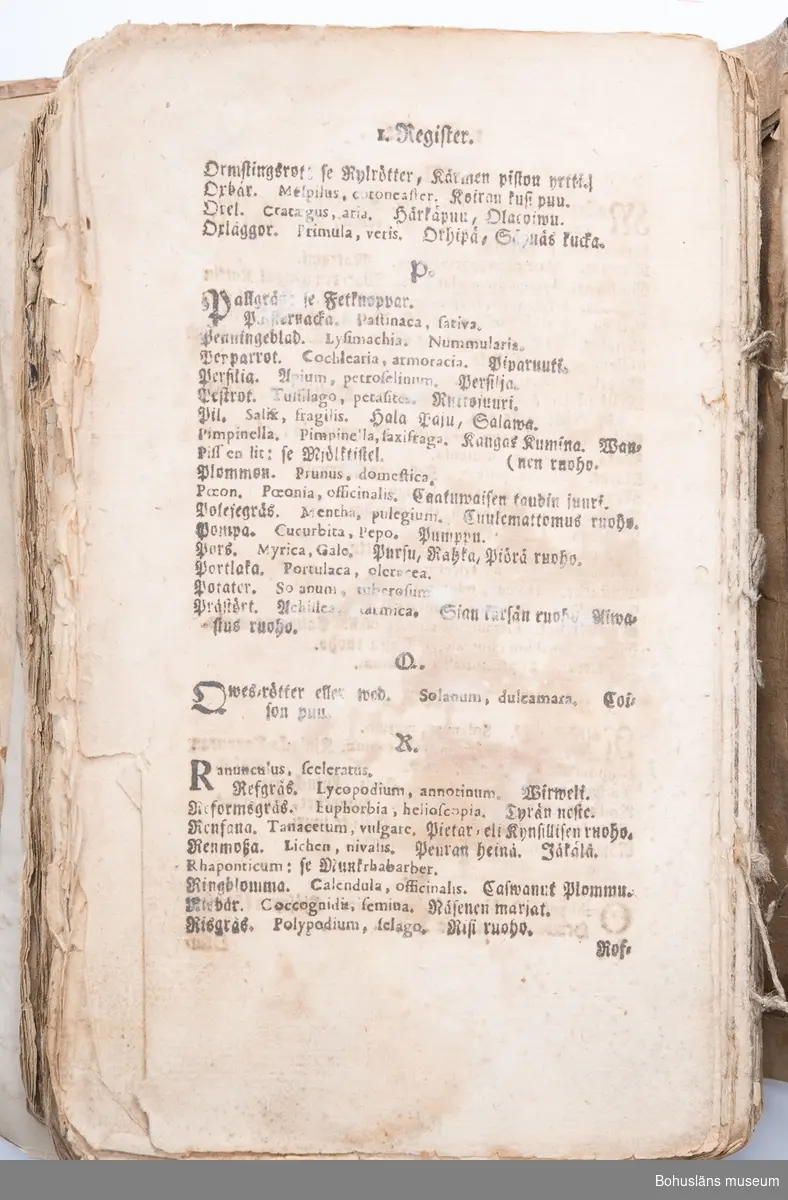 1. Register.
Ormstingsrot: se Rylrötter, Kärmen piston yrtti.
Oxbär. Mespilus, cotoneaster. Koiran kusi puu.
Oxel. Cratægus, aria. Härkäpuu, Olacoiwu.
Oxläggor. Primula, veris. Okhipä, kucka.
P.
Pallgräs: se Fetknoppar.
Pasternacka. Pastinaca, sativa.
Penningeblad. Lysimachia. Nummularia.
Pepparrot. Cochlearia, armoracia. Piparuuti.
Persilia. Apium, petroselinum. Persilja.
Pestrot. Tussilago, petasites. Ruttojuuri.
Pil. Salix, fragilis. Hala Paju, Salawa.
Pimpinella. Pimpinella, saxifraga. Kangas Kumina. Wan-
Piss en lit: se Mjölktistel. (nen ruoho.
Plommon. Prunus, domestica.
Pœon. Pœonia, officinalis. Caatuwaisen taudin juuri.
Polejegräs. Mentha, pulegium. Cuulemattomus ruoho.
Pompa. Cucurbita, Pepo. Pumppu.
Pors. Myrica, Gale. Pursu, Ratzka, Piörä ruoho.
Portlaka. Portulaca, oleracea.
Potater. Solanum, tuberosum
Prästört. Achillea, tarmica. Sian tärsän ruoho Aiwa-
stus ruoho.
Q.
Qwes-rötter eller wed. Solanum, dulcamara. Coi-
son puu.
R.
Ranunculus, sceleratus.
Refgräs. Lycopodium, annotinum. Wirweli.
Reformsgräs. Euphorbia, helioscopia. Tyrän neste.
Renfana. Tanacetum, vulgare. Pietar, eli Kynsillisen ruoho.
Renmoßa. Lichen, nivalis. Peuran heinä. Jäkälä.
Rhaponticum: se Munkrhabarber.
Ringblomma. Calendula, officinalis. Caswanut Plommu.
Risbär. Coccognidii, semina. Näsenen marjat.
Risgräs. Polypodium, selago. Risi ruoho.
Rof-
Bohusläns museum